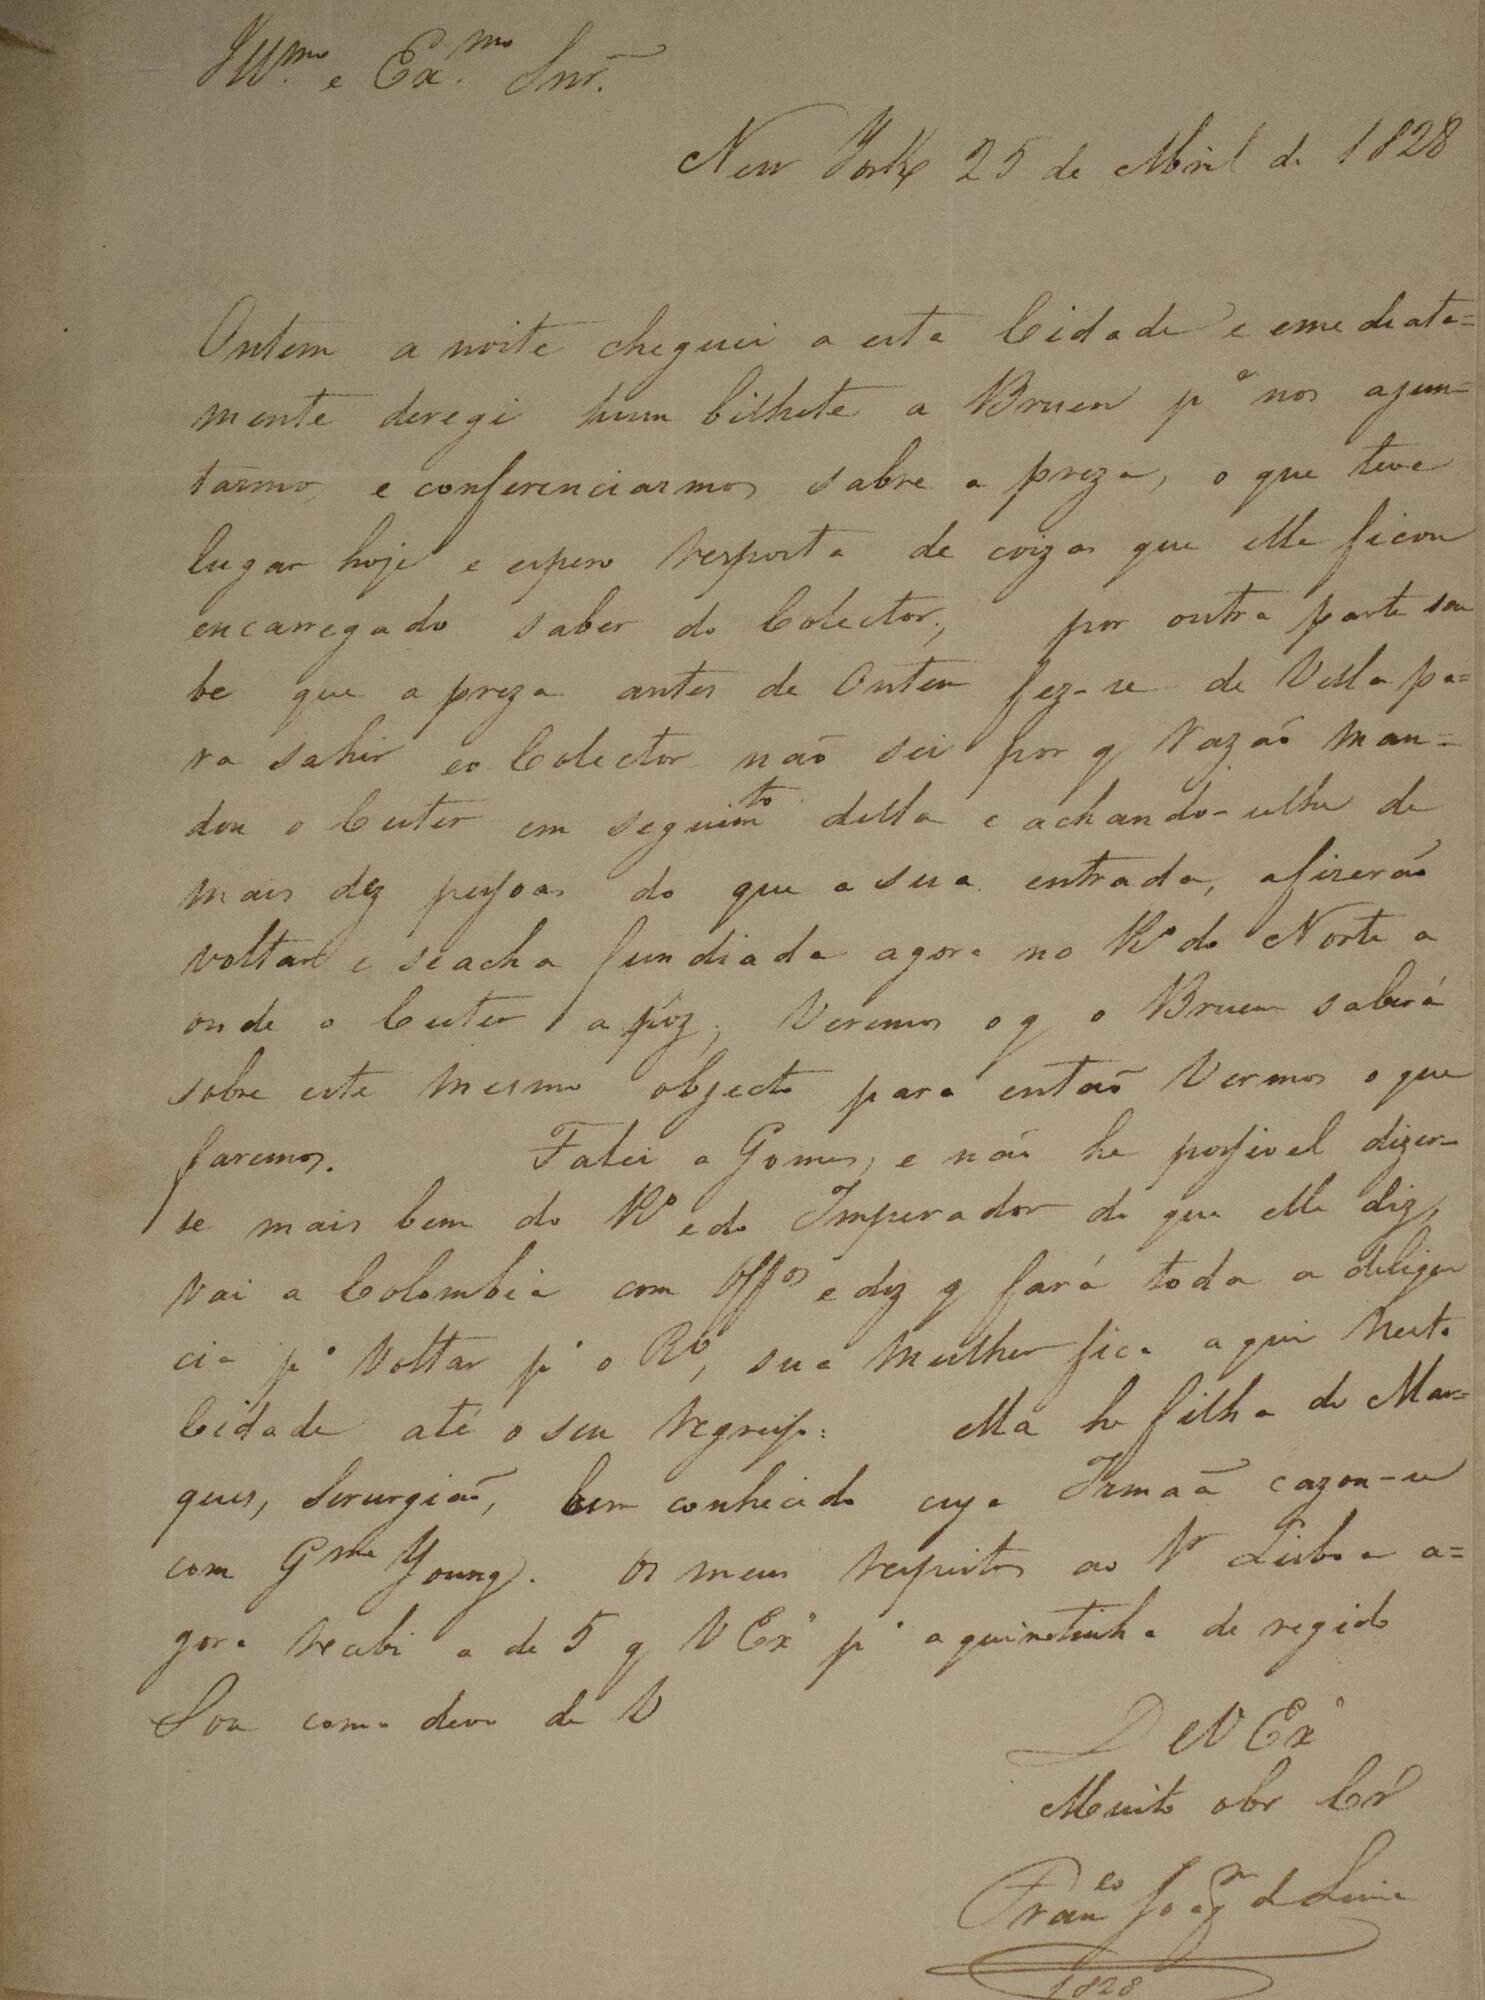 Illmo. e Exmo. Snr.
New York 25 de Abril de 1828
Ontem a noite cheguei a esta Cidade e emediata=
mente deregi hum bilhete a Bruen pa nos ajun=
tarmos, e conferenciarmos sobre a preza, o que teve
lugar hoje e espero resposta de coizas que elle ficou
encarregado saber do Colector, por outra parte sou
be que a preza antes de Ontem fez-se de Vella pa=
ra sahir eo Colector não sei por q razaõ man=
dou o Cuter em seguimto della e achando-selhe de
mais dez pessoas do que a sua entrada, afizeraõ
voltar e seacha fundiada agora no Ro do Norte a
onde o Cuter a póz, Veremos oq o Bruen saberá
sobre este mesmo objecto para entaõ Vermos o que
faremos. Falei a Gomes, e naõ he possivel dizer-
se mais bem do Ro edo Imperador do que elle diz,
vai a Colombia com Offos e diz q fará toda a deligen
cia pa Voltar pa o Rio, sua mulher fica aqui nesta
Cidade até o seu regresso: Ella he filha do Mar=
ques, Serurgiaõ, bem conhecido cuja Irmaã cazou-se
com Gme Young. Os meus respeitos ao Sr Lisboa a=
gora recebi a de 5 q V Exa pa aqui me tinha deregido
Sou como devo de V
D e V Exa
Muito obr Cro
Franco Joaqm de Lima
1828